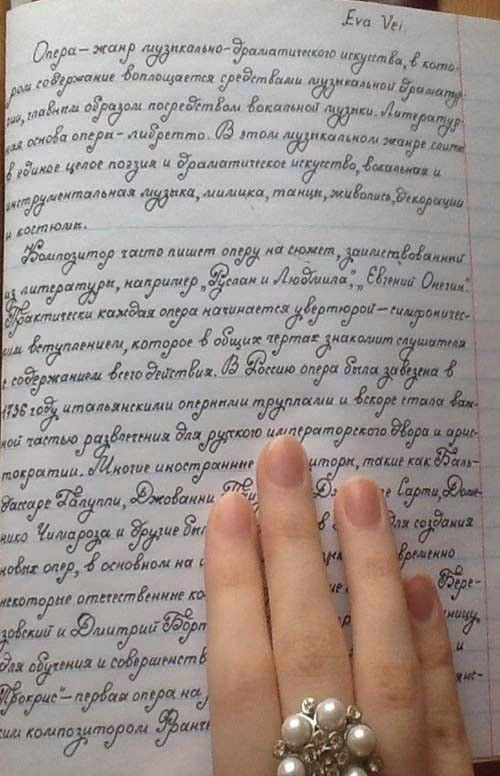 Eva Vei.
Опера – жанр музыкально-драматического искусства, в кото-
ром содержание воплощается средствами музыкальной драматур-
гии, главным образом посредством вокальной музыки. Литератур-
ная основа оперы – либретто. В этом музыкальном жанре слиты
в единое целое поэзия и драматическое искусство, вокальная и
инструментальная музыка, мимика, танцы, живопись, декорации
и костюмы.
Композитор часто пишет оперу на сюжет, заимствованный
из литературы, например „Руслан и Людмила", „Евгений Онегин".
Практически каждая опера начинается увертюрой – симфоничес-
ким вступлением, которое в общих чертах знакомит слушателя
с содержанием всего действия. В Россию опера была завезена в
1736 году итальянскими оперными труппами и вскоре стала важ-
ной частью развлечения для русского императорского двора и арис-
тократии. Многие иностранные
такие как Баль-
дассаре Галуппи, Джованни Сарти, Доме-
нико Чимароза и другие в для создания
новых опер, в основном на
некоторые отечественные Бере-
зовский и Дмитрий
для обучения и и
Прокрис" – первая опера на
ким композитором